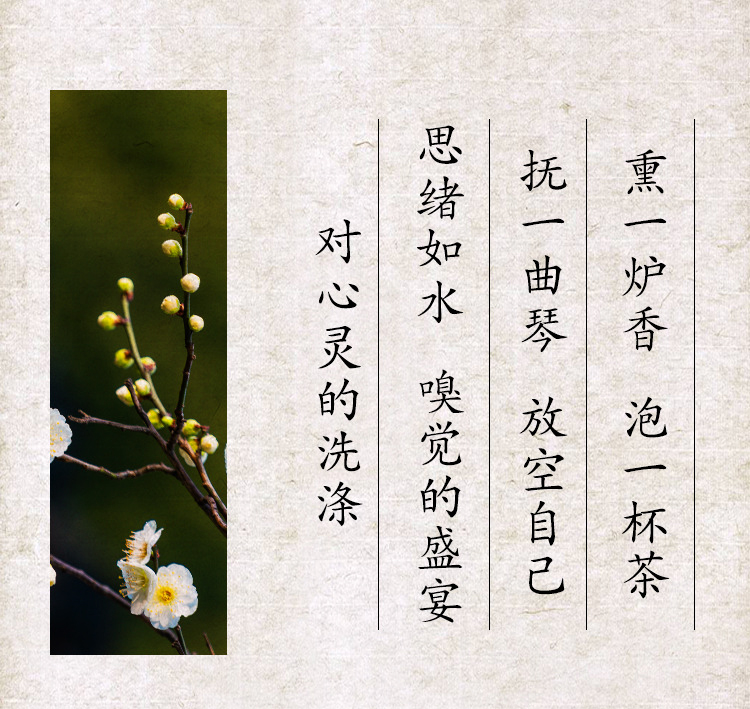 熏一炉香 泡一杯茶
抚一曲琴 放空自己
思绪如水 嗅觉的盛宴
对心灵的洗涤